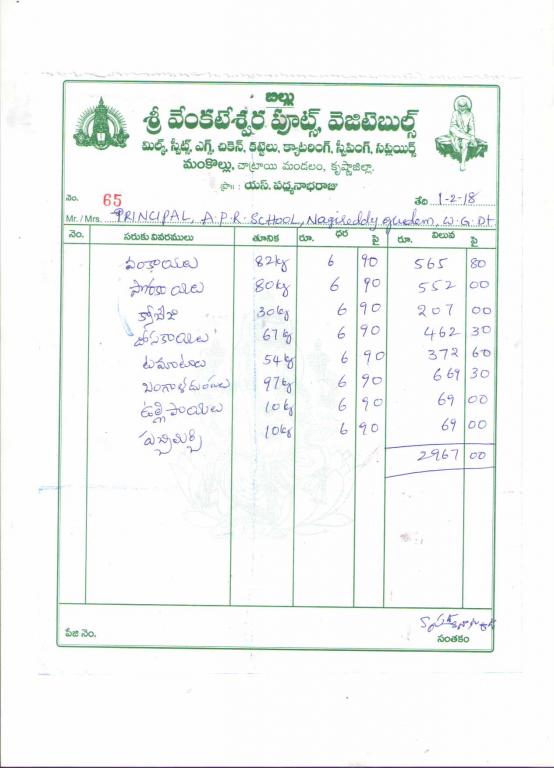 బిల్లు
శ్రీ వేంకటేశ్వర ఫూట్స్, వెజిటెబుల్స్
మిల్క్, స్వీట్స్, ఎగ్స్, చికెన్, కట్టెలు, క్యాటరింగ్, స్వీపింగ్, సప్లయిర్స్
మంకొల్లు, చాట్రాయి మండలం, కృష్ణాజిల్లా.
ప్రొ॥ : యస్. పద్మనాభరాజు
నెం. 65 తేది 1-2-18
Mr. / Mrs. PRINCIPAL, A.P.R. SCHOOL, Nagireddygudem, W.G.Dt.
నెం. సరుకు వివరములు తూనిక రూ. ధర పై రూ. విలువ పై
వంకాయలు 82kg 6 90 565 80
దోసకాయలు 80kg 6 90 552 00
క్యాబేజి 30kg 6 90 207 00
బీరకాయలు 67kg 6 90 462 30
టమాటాలు 54kg 6 90 372 60
బంగాళదుంపలు 97kg 6 90 669 30
ఉల్లిపాయలు 10kg 6 90 69 00
పచ్చిమిర్చి 10kg 6 90 69 00
2967 00
పేజి నెం. సంతకం